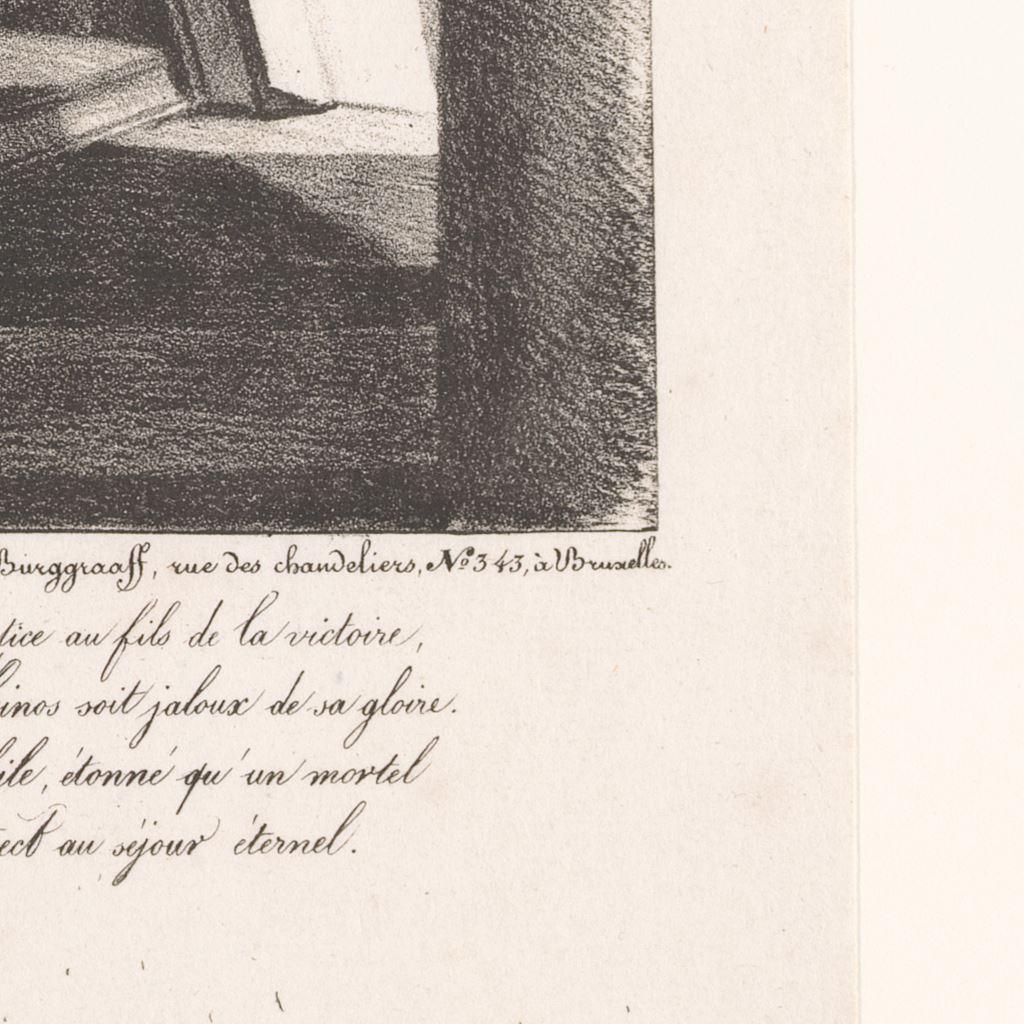 Burggraaff, rue des chandeliers, No 343, à Bruxelles.
au fils de la victoire,
soit jaloux de sa gloire.
étonné qu'un mortel
au séjour éternel.